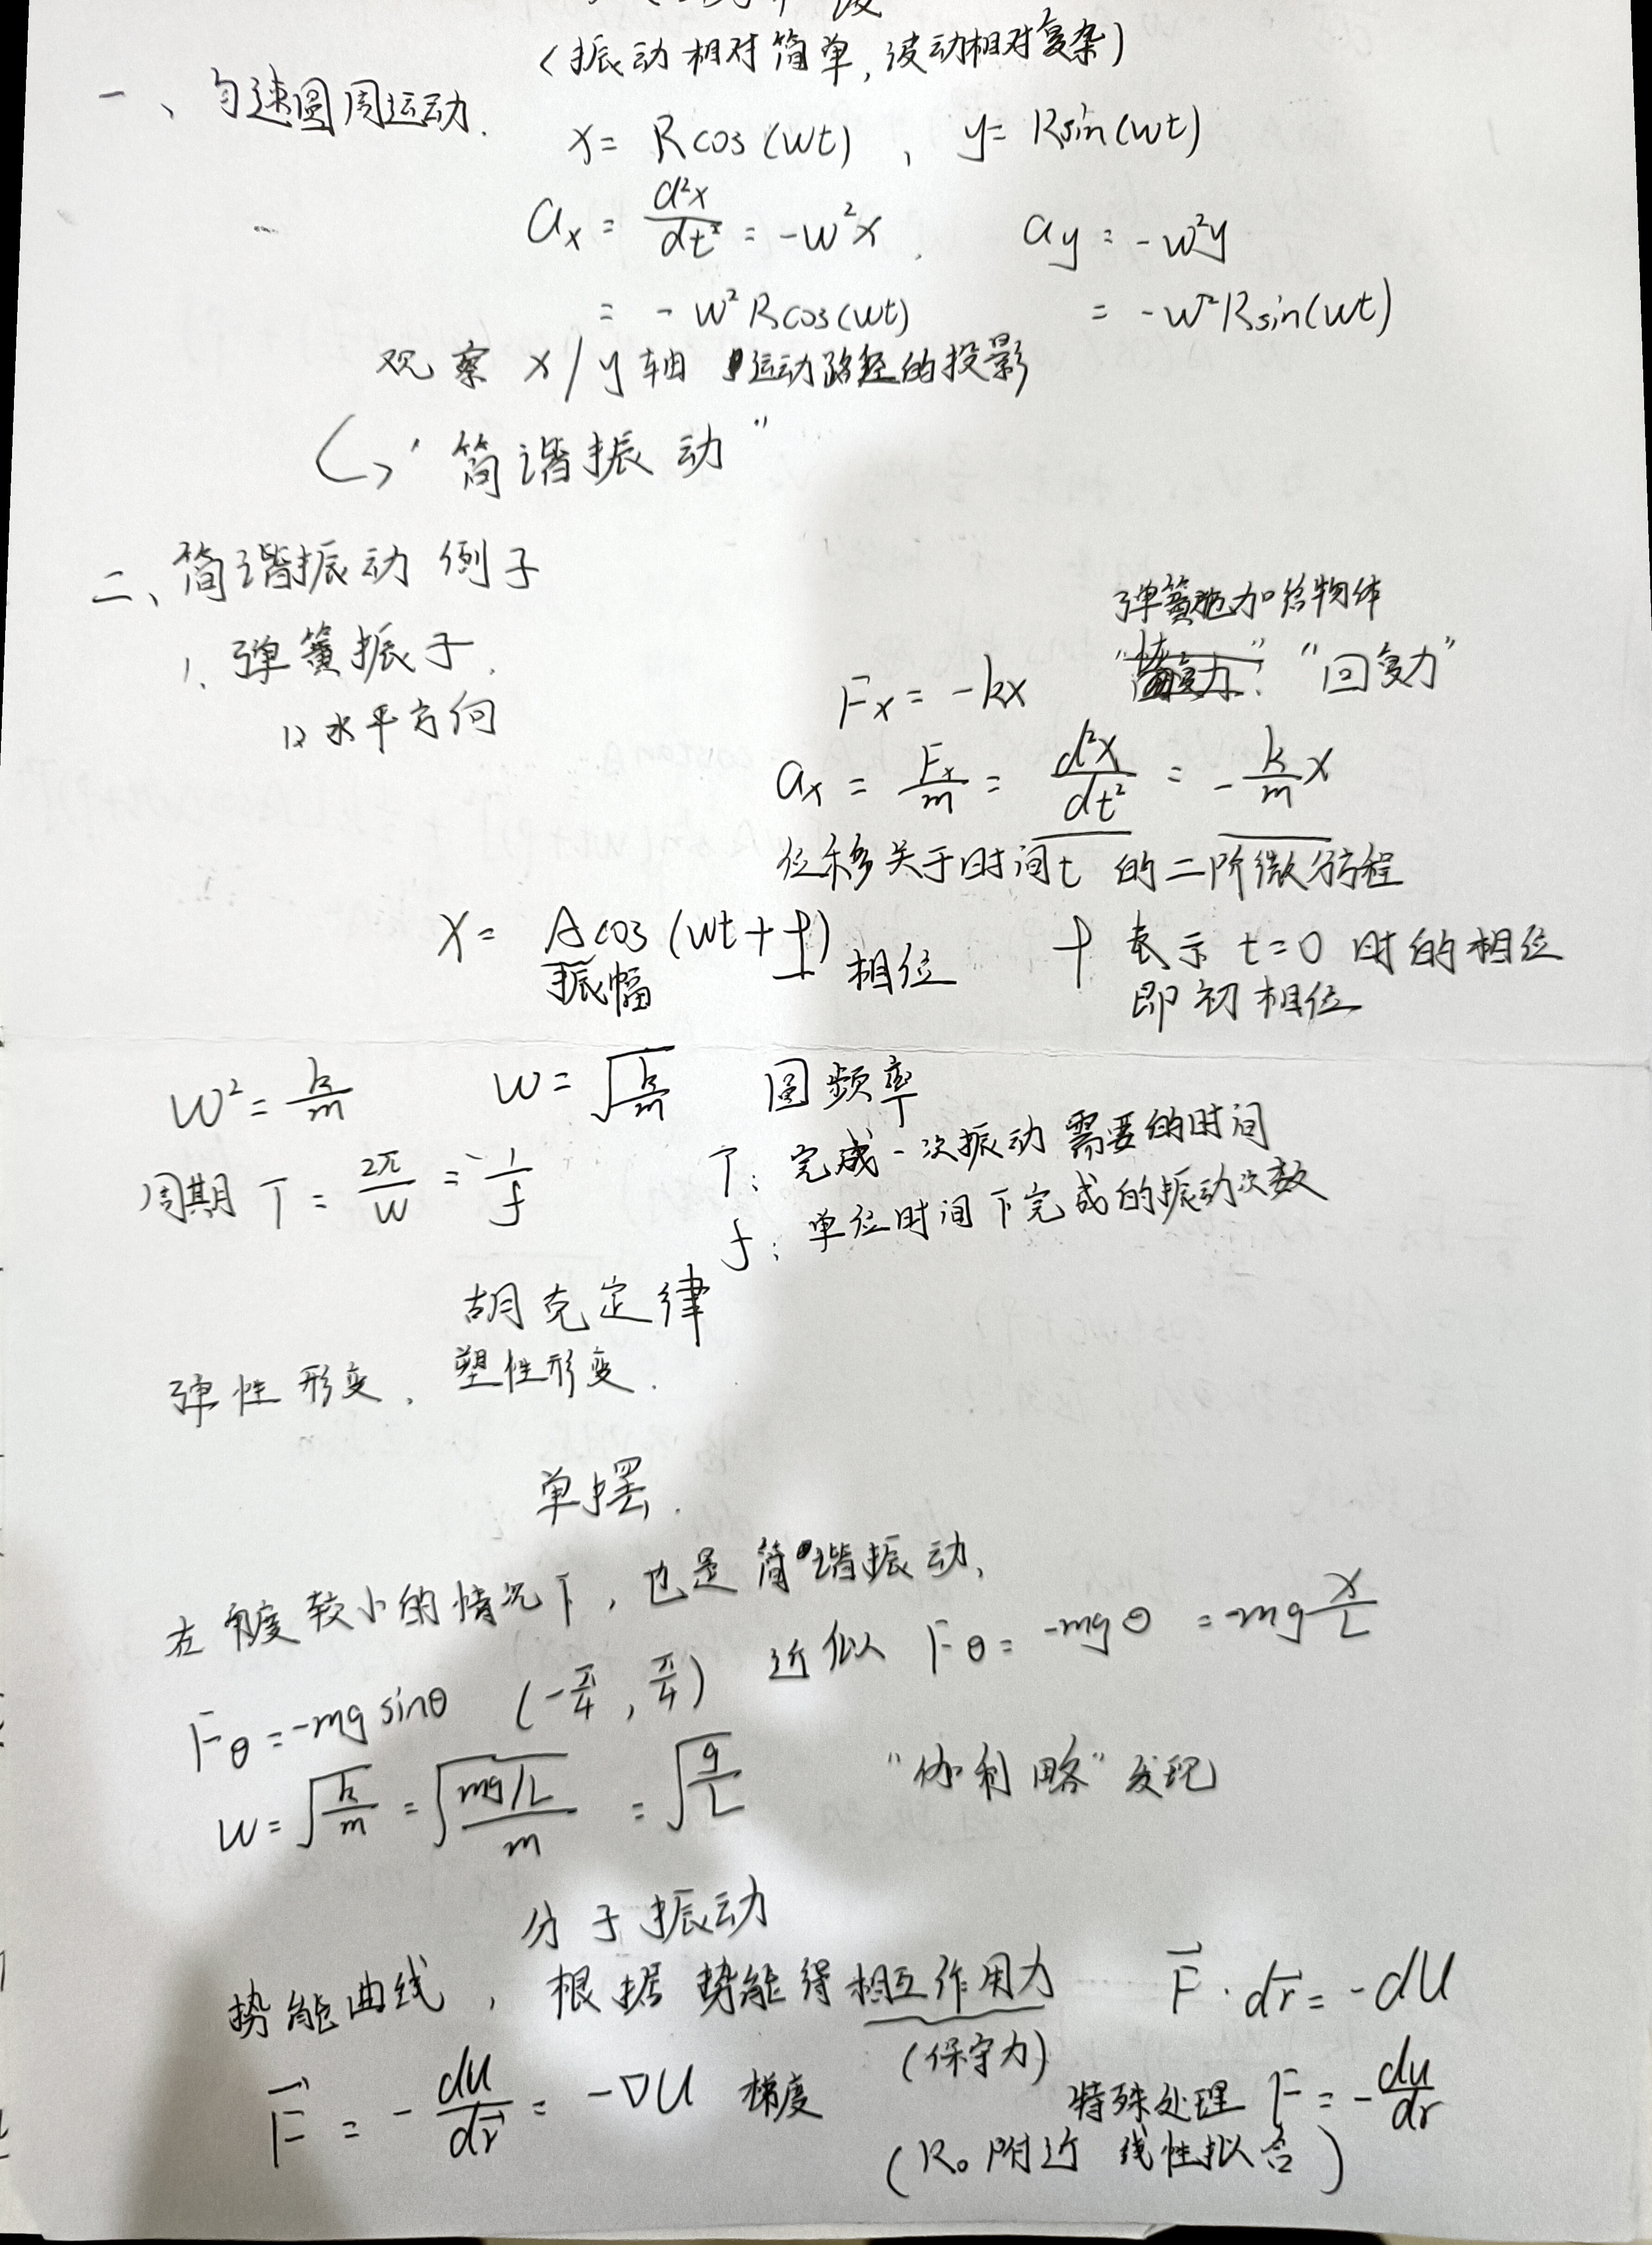 (振动相对简单,波动相对复杂)
一、匀速圆周运动.
x = Rcos(wt) , y = Rsin(wt)
ax = d²x/dt² = -w²x . ay = -w²y
= -w²Rcos(wt) = -w²Rsin(wt)
观察 x/y轴 运动路径的投影
↪ "简谐振动"
二、简谐振动 例子
弹簧施加给物体
1. 弹簧振子.
Fx = -kx "回复力"
1) 水平方向
ax = Fx/m = d²x/dt² = -k/m x
位移关于时间t 的二阶微分方程
x = Acos(wt+φ) φ 表示 t=0 时的相位
振幅 相位 即初相位
w² = k/m w = √(k/m) 圆频率
周期 T = 2π/w = 1/f T: 完成一次振动需要的时间
f: 单位时间下完成的振动次数
胡克定律
弹性形变、塑性形变.
单摆.
在角度较小的情况下,也是简谐振动,
Fθ = -mg sinθ (-π/4, π/4) 近似 Fθ = -mgθ = -mg x/L
w = √(k/m) = √((mg/L)/m) = √(g/L) "伽利略"发现
分子振动
势能曲线, 根据势能得相互作用力 F⃗·dr⃗ = -dU
(保守力)
F⃗ = -dU/dr⃗ = -∇U 梯度 特殊处理 F = -du/dr
(R₀附近 线性拟合)